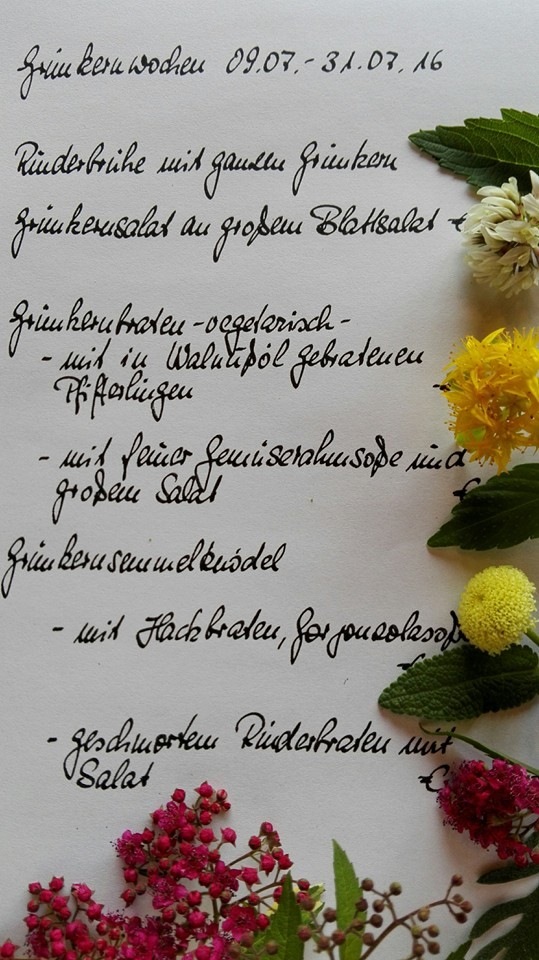 Grünkernwochen 09.07.-31.07.16
Rinderbrühe mit ganzen Grünkern
Grünkernsalat an großem Blattsalat €
Grünkernbraten -vegetarisch-
- mit in Walnußöl gebratenen
Pfifferlingen
- mit feiner Gemüserahmsoße und
großem Salat €
Grünkernsemmelknödel
- mit Hackbraten, Gorgonzolasoße
- geschmortem Rinderbraten mit
Salat €